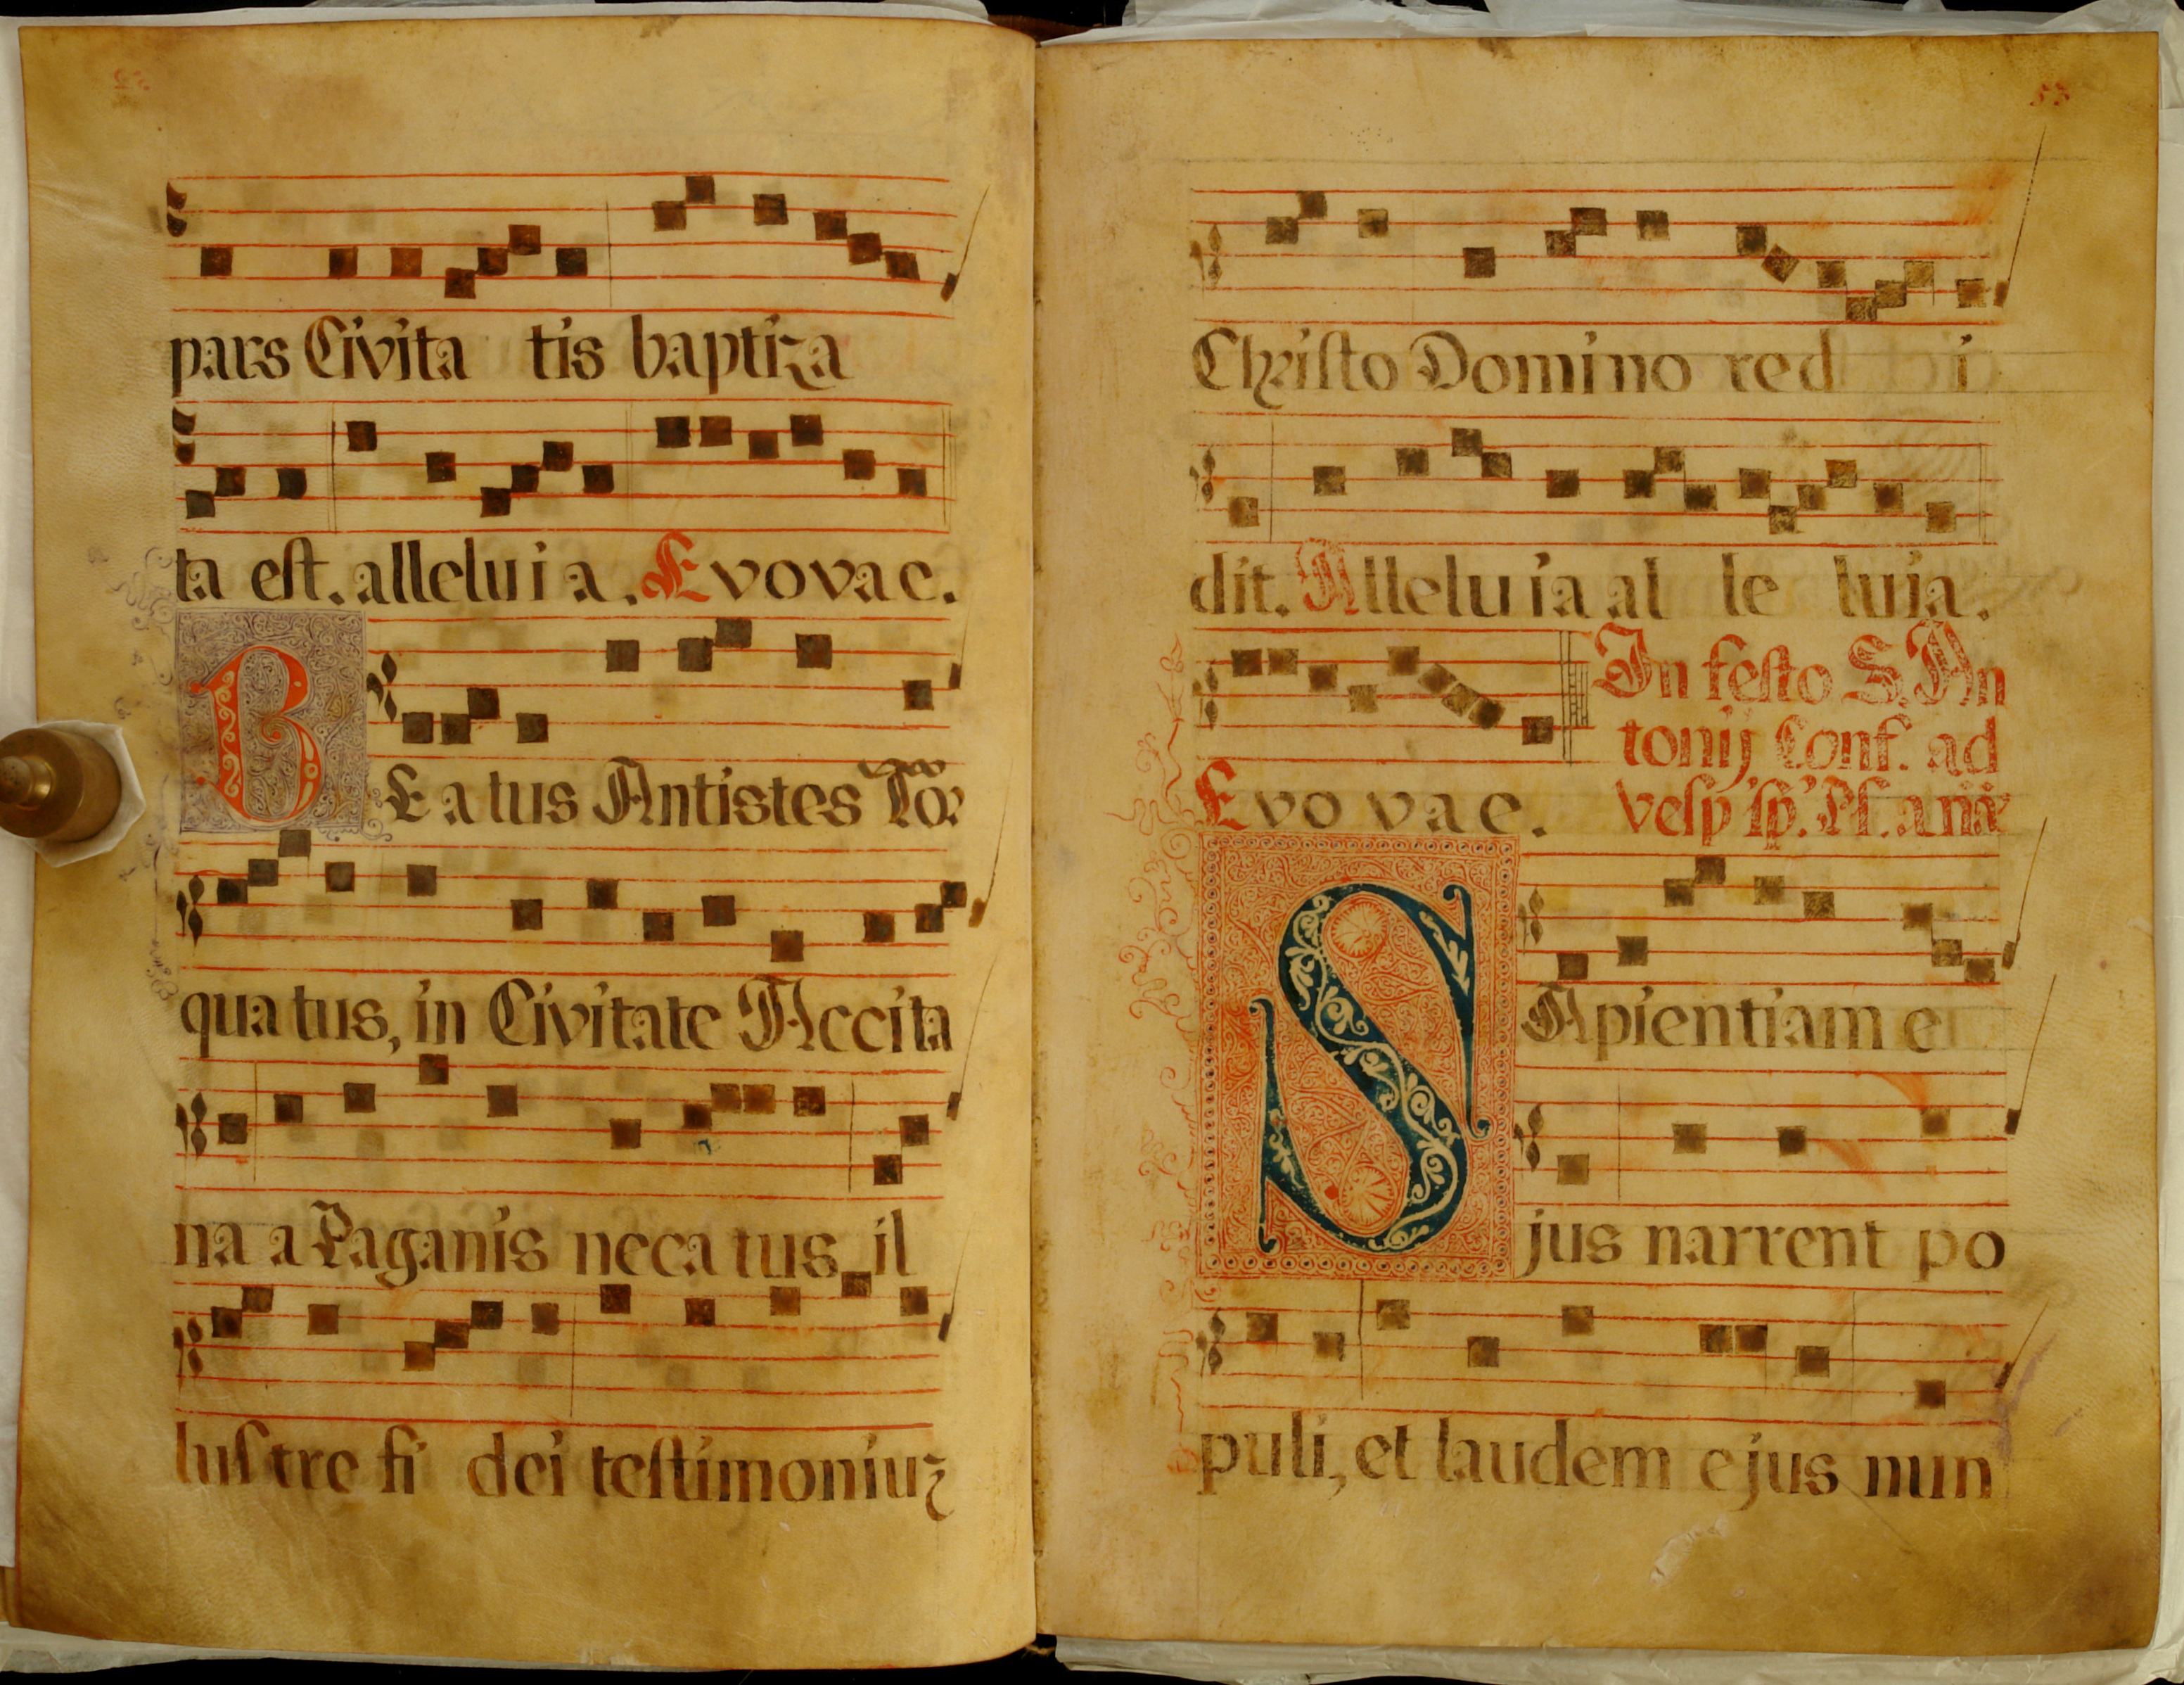 pars Civita tis baptiza
ta est. alleluia. Evovae.
BEatus Antistes Tor
quatus, in Civitate Accita
na a Paganis necatus il
lustre fi dei testimoniuz
55
Christo Domino red i
dit. Alleluia al le luia.
In festo S. An
tonij Conf. ad
Evovae.
SApientiam e
jus narrent po
puli, et laudem ejus nun